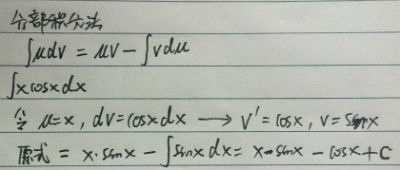 分部积分法
∫μdv = μv - ∫vdμ
∫xcosxdx
令 μ=x, dv=cosxdx ⟶ v'=cosx, v=sinx
原式 = x·sinx - ∫sinxdx = x·sinx - cosx + C